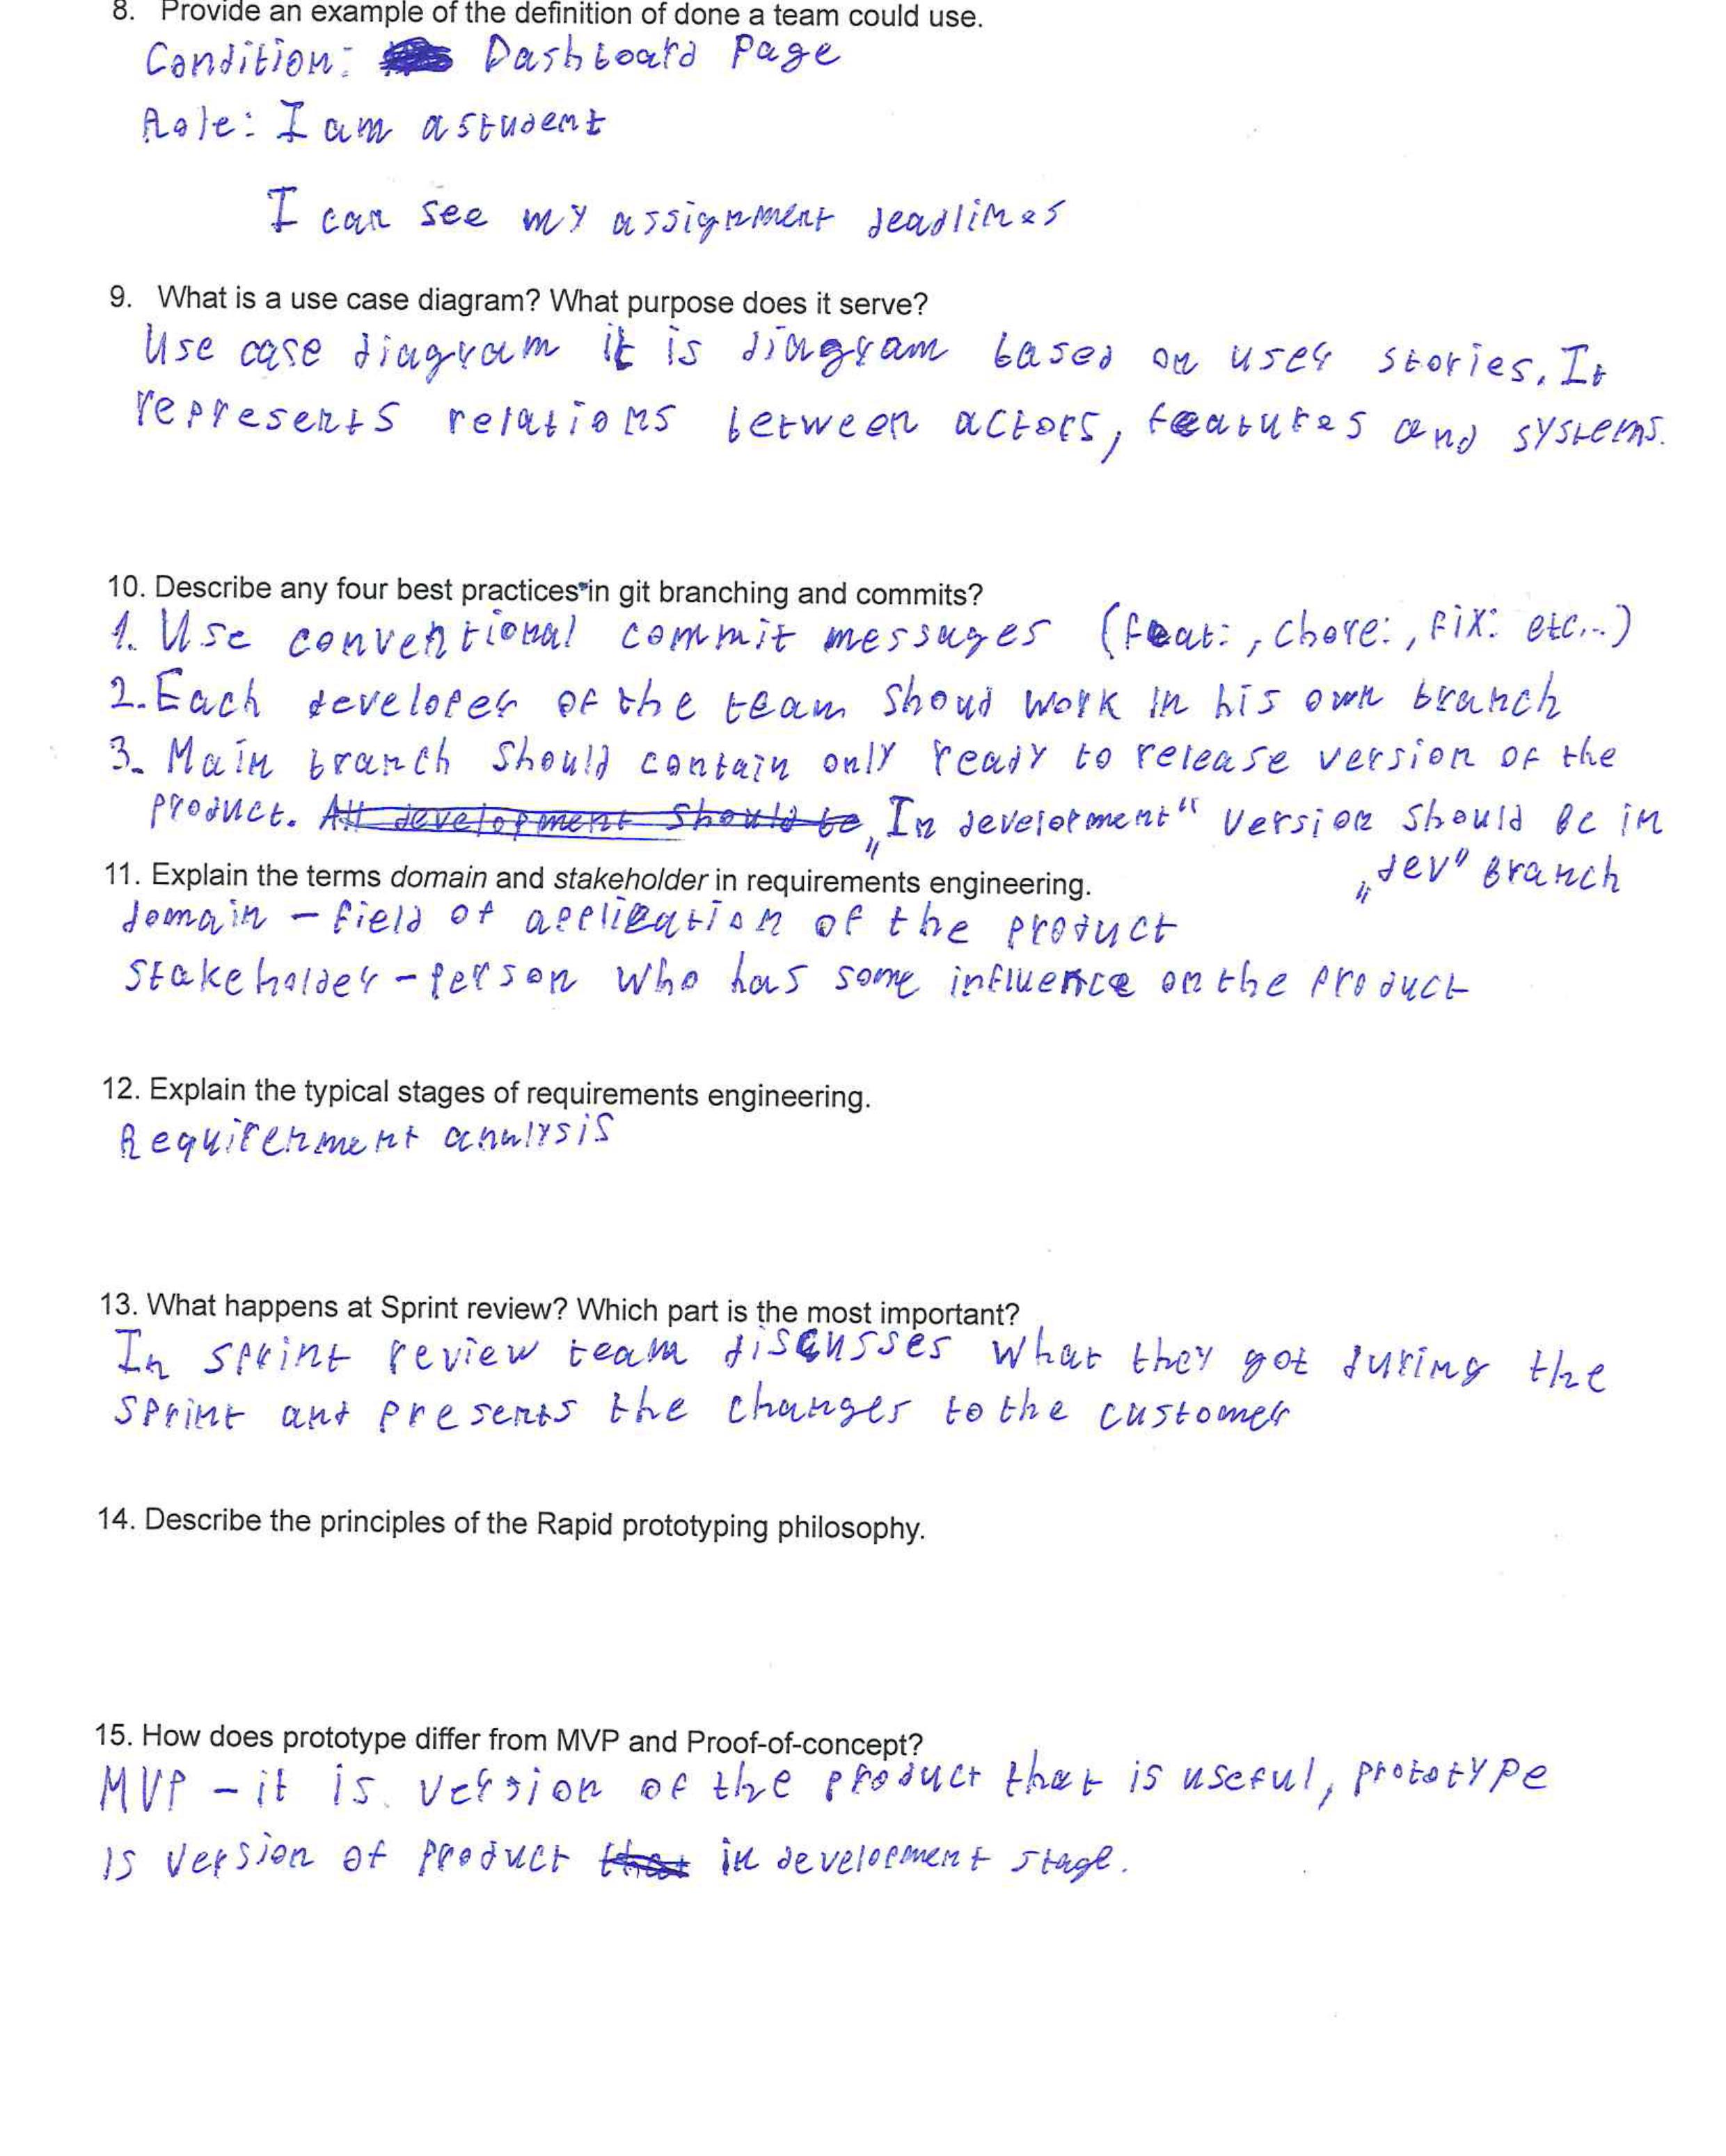 8. Provide an example of the definition of done a team could use.
Condition: Dashboard Page
Role: I am a student
I can see my assignment deadlines
9. What is a use case diagram? What purpose does it serve?
Use case diagram it is diagram based on user stories. It
represents relations between actors, features and systems.
10. Describe any four best practices in git branching and commits?
1. Use conventional commit messages (feat: , chore: , fix: etc...)
2. Each developer of the team shoud work in his own branch
3. Main branch should contain only ready to release version of the
product. All development should be „In development“ version should be in
„dev” branch
11. Explain the terms domain and stakeholder in requirements engineering.
domain - field of application of the product
stakeholder - person who has some influence on the product
12. Explain the typical stages of requirements engineering.
Requirenment analysis
13. What happens at Sprint review? Which part is the most important?
In sprint review team discusses what they got during the
sprint and presents the changes to the customer
14. Describe the principles of the Rapid prototyping philosophy.
15. How does prototype differ from MVP and Proof-of-concept?
MVP - it is version of the product that is useful, prototype
is version of product that in development stage.